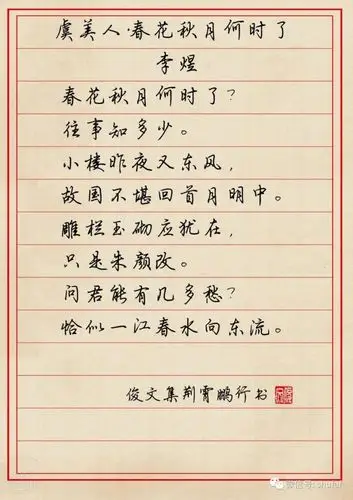 虞美人·春花秋月何时了
李煜
春花秋月何时了?
往事知多少。
小楼昨夜又东风,
故国不堪回首月明中。
雕栏玉砌应犹在,
只是朱颜改。
问君能有几多愁?
恰似一江春水向东流。
俊文集荆霄鹏行书
微信号: shufu